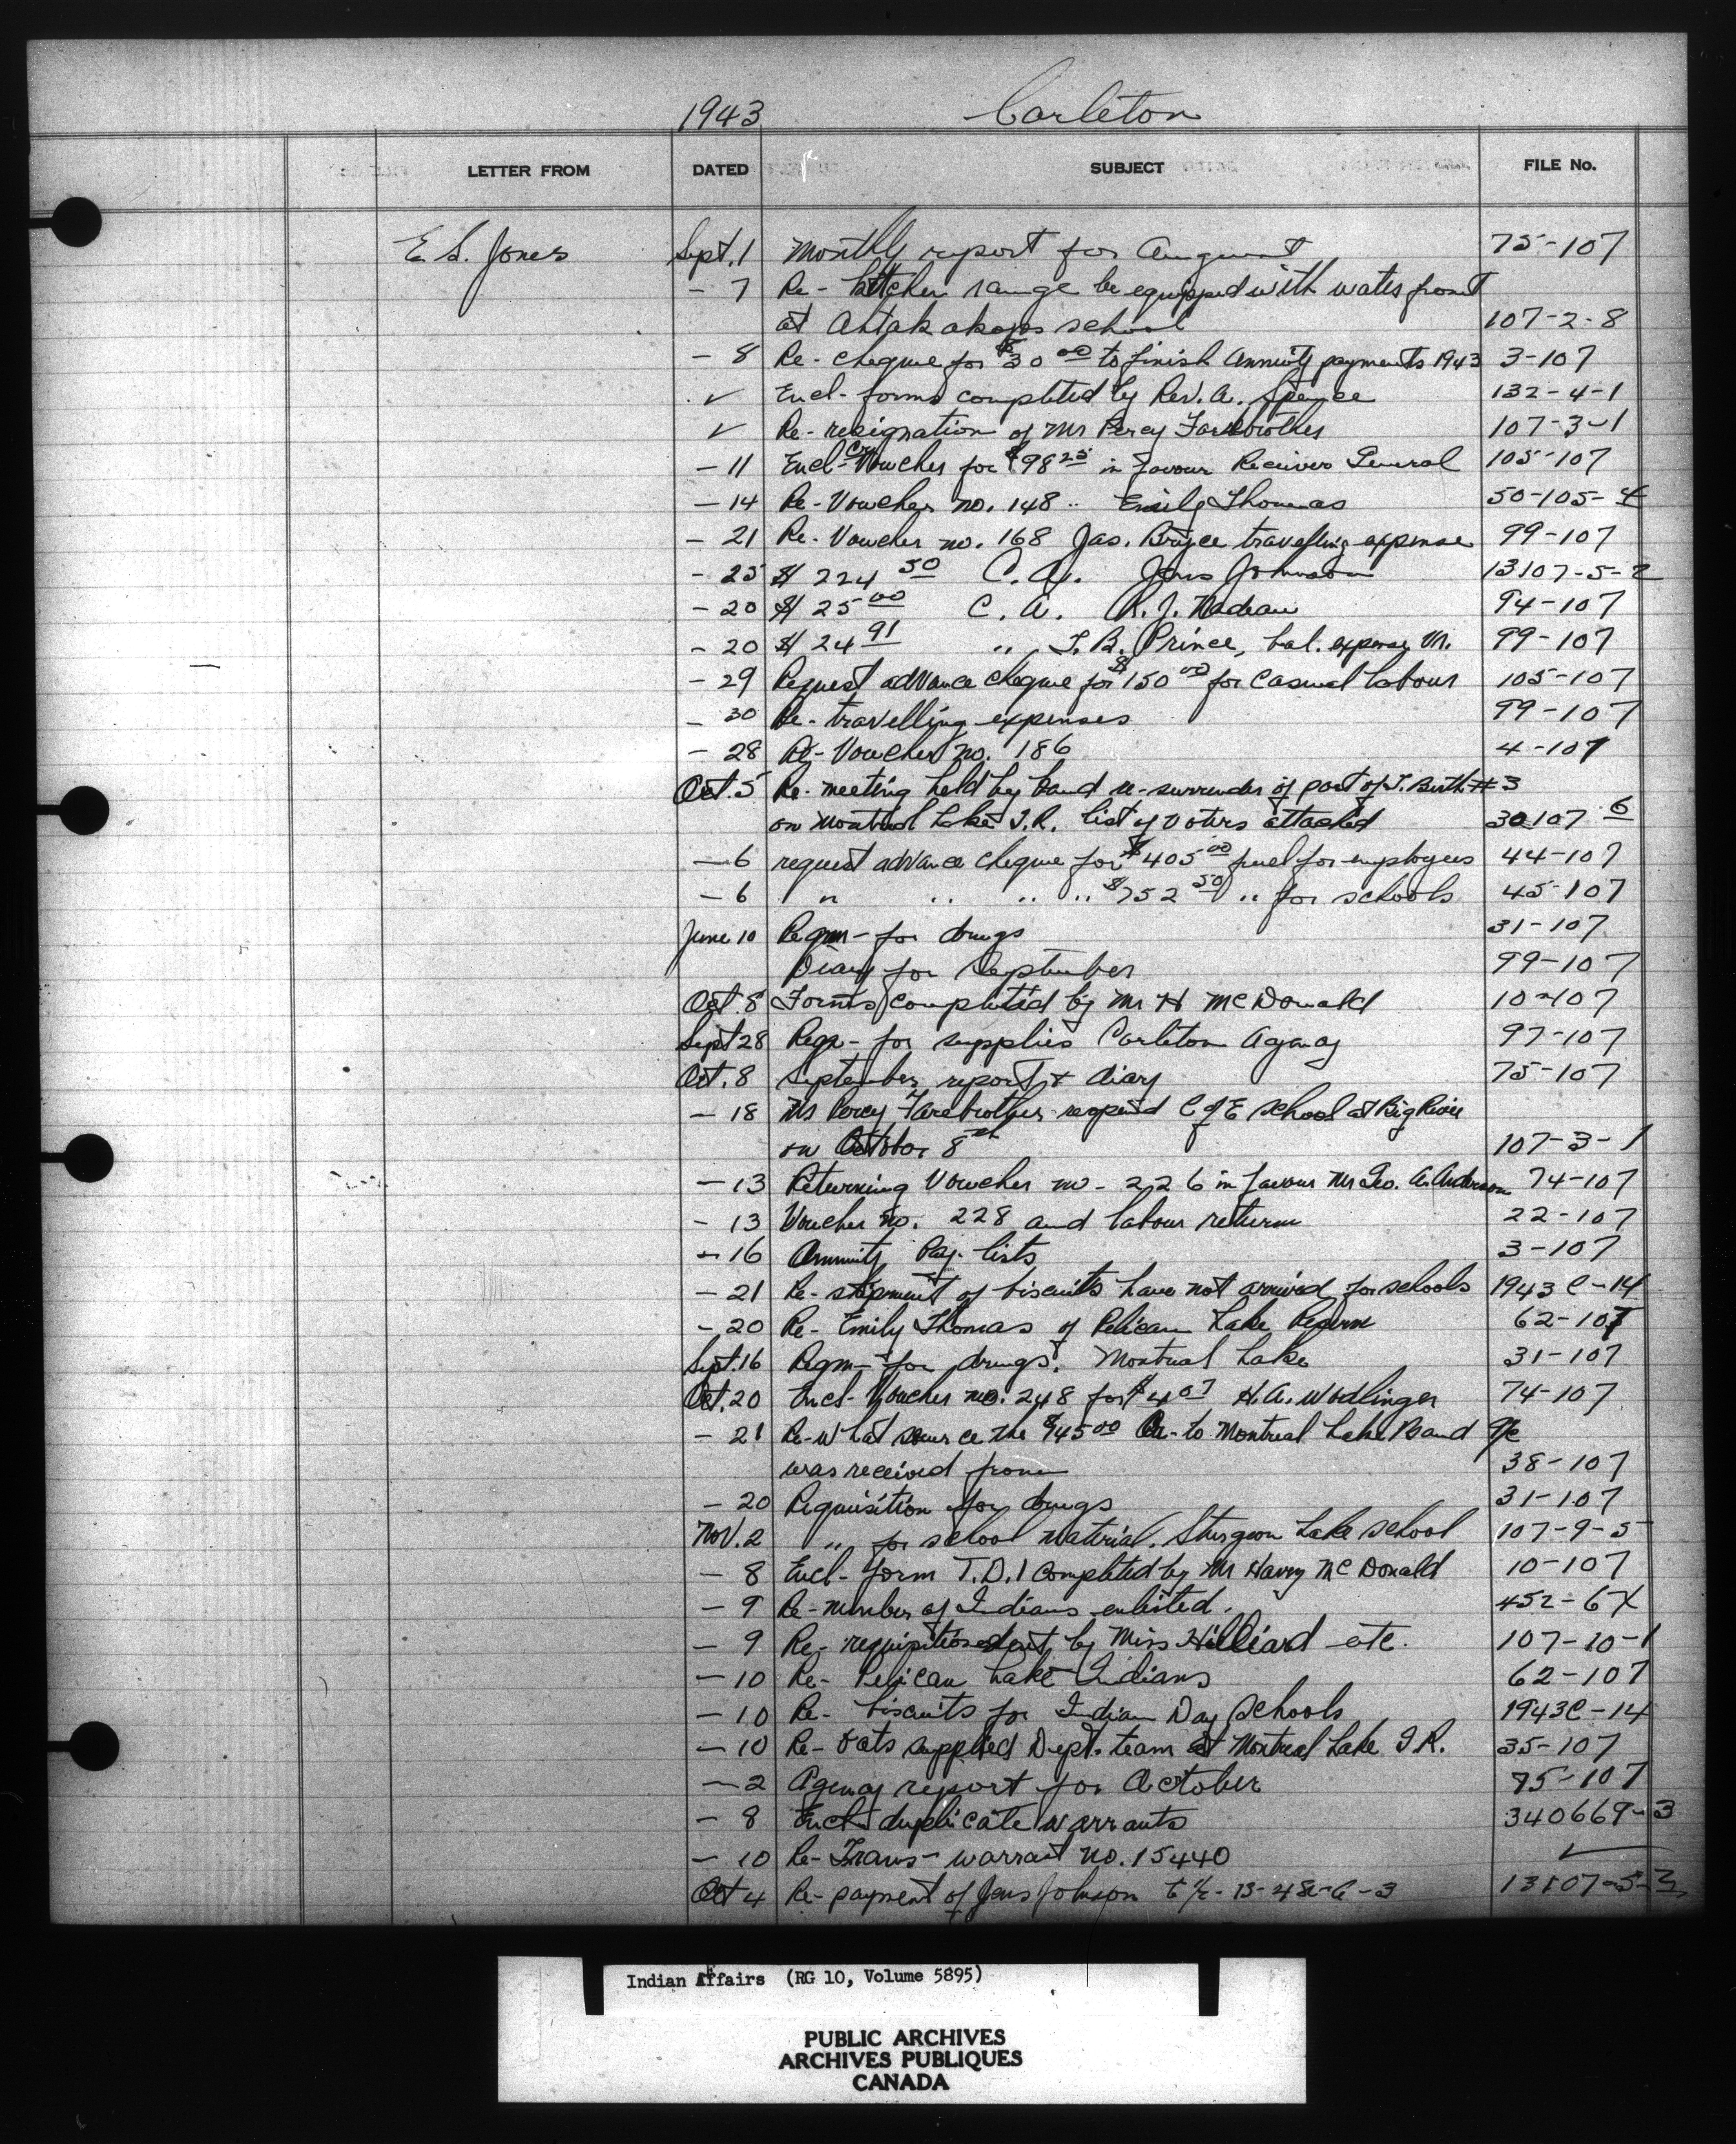 1943 Carleton
LETTER FROM DATED SUBJECT FILE No.
E. S. Jones Sept. 1 Monthly report for August 75-107
- 7 Re- kitchen range be equipped with water front
at Ahtahakoops school 107-2-8
- 8 Re- cheque for $30 00 to finish Annuity payments 1943 3-107
✓ Encl- forms completed by Rev. A. Spence 132-4-1
✓ Re- resignation of Mr Percy Farebrother 107-3-1
- 11 Encl- Voucher for $98 25 in favour Receiver General 105-107
- 14 Re- Voucher no. 148 .. Emily Thomas 50-105-4
- 21 Re- Voucher no. 168 Jas. Bryce travelling expense 99-107
- 25 $ 224 50 C. A. Jens Johnson 13107-5-2
- 20 $ 25 00 C. A. R. J. Nadeau 94-107
- 20 $ 24 91 " J. B. Prince, bal. expense 99-107
- 29 Request advance cheque for $150 00 for casual labour 105-107
- 30 Re- travelling expenses 99-107
- 28 Re- Voucher no. 186 4-107
Oct. 5 Re- meeting held by band re- surrender of part of T. Berth #3
on Montreal Lake I.R. list of voters attached 30107 6
- 6 request advance cheque for $405 00 fuel for employees 44-107
- 6 " .. .. .. $752 50 .. for schools 45-107
June 10 Reqn- for drugs 31-107
Diary for September 99-107
Oct. 8 Forms completed by Mr H McDonald 10-107
Sept 28 Reqn- for supplies Carleton Agency 97-107
Oct. 8 September report & diary 75-107
- 18 Mr Percy Farebrother reopened C of E school at Big River
on October 8th 107-3-1
- 13 Returning Voucher no- 226 in favour Mr Geo. A. Anderson 74-107
- 13 Voucher no. 228 and labour return 22-107
- 16 Annuity Pay- lists 3-107
- 21 Re- shipment of biscuits have not arrived for schools 1943 C-14
- 20 Re- Emily Thomas of Pelican Lake Reserve 62-107
Sept. 16 Reqm- for drugs. Montreal Lake 31-107
Oct. 20 Encl- Voucher no. 248 for $4 07 H. A. Wodlinger 74-107
- 21 Re- What source the $45 00 Cr- to Montreal Lake Band a/c
was received from 38-107
- 20 Requisition for drugs 31-107
Nov. 2 " for school material. Sturgeon Lake School 107-9-5
- 8 Encl- form T.D.1 completed by Mr Harry McDonald 10-107
- 9 Re- number of Indians enlisted. 452-6X
- 9 Re- requisition sent by Miss Hilliard etc. 107-10-1
- 10 Re- Pelican Lake Indians 62-107
- 10 Re- biscuits for Indian Day Schools 1943C-14
- 10 Re- oats supplied Dept. team at Montreal Lake I.R. 35-107
- 2 Agency report for October 75-107
- 8 Encl- duplicate warrants 340669-3
- 10 Re- Trans- warrant no. 15440 ✓
Oct 4 Re- payment of Jens Johnson 13107-5-2
Indian Affairs (RG 10, Volume 5895)
PUBLIC ARCHIVES
ARCHIVES PUBLIQUES
CANADA